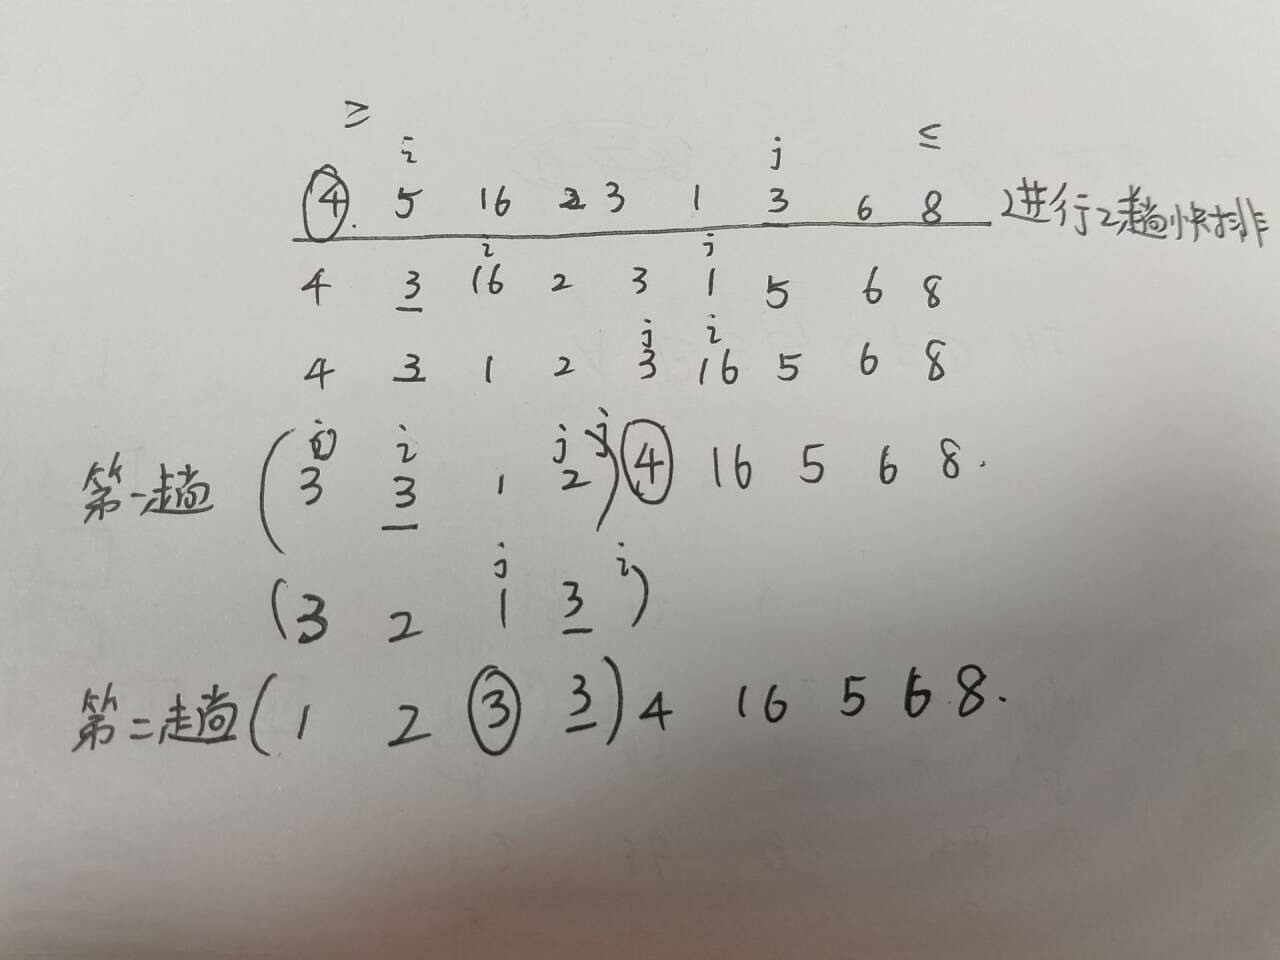 ≥ ≤
i j
4. 5 16 2 3 1 3 6 8 进行2趟快排
i j
4 3 16 2 3 1 5 6 8
j i
4 3 1 2 3 16 5 6 8
i j j
第一趟 (3 3 1 2) 4 16 5 6 8.
j i
(3 2 1 3)
第二趟 (1 2 3 3) 4 16 5 6 8.